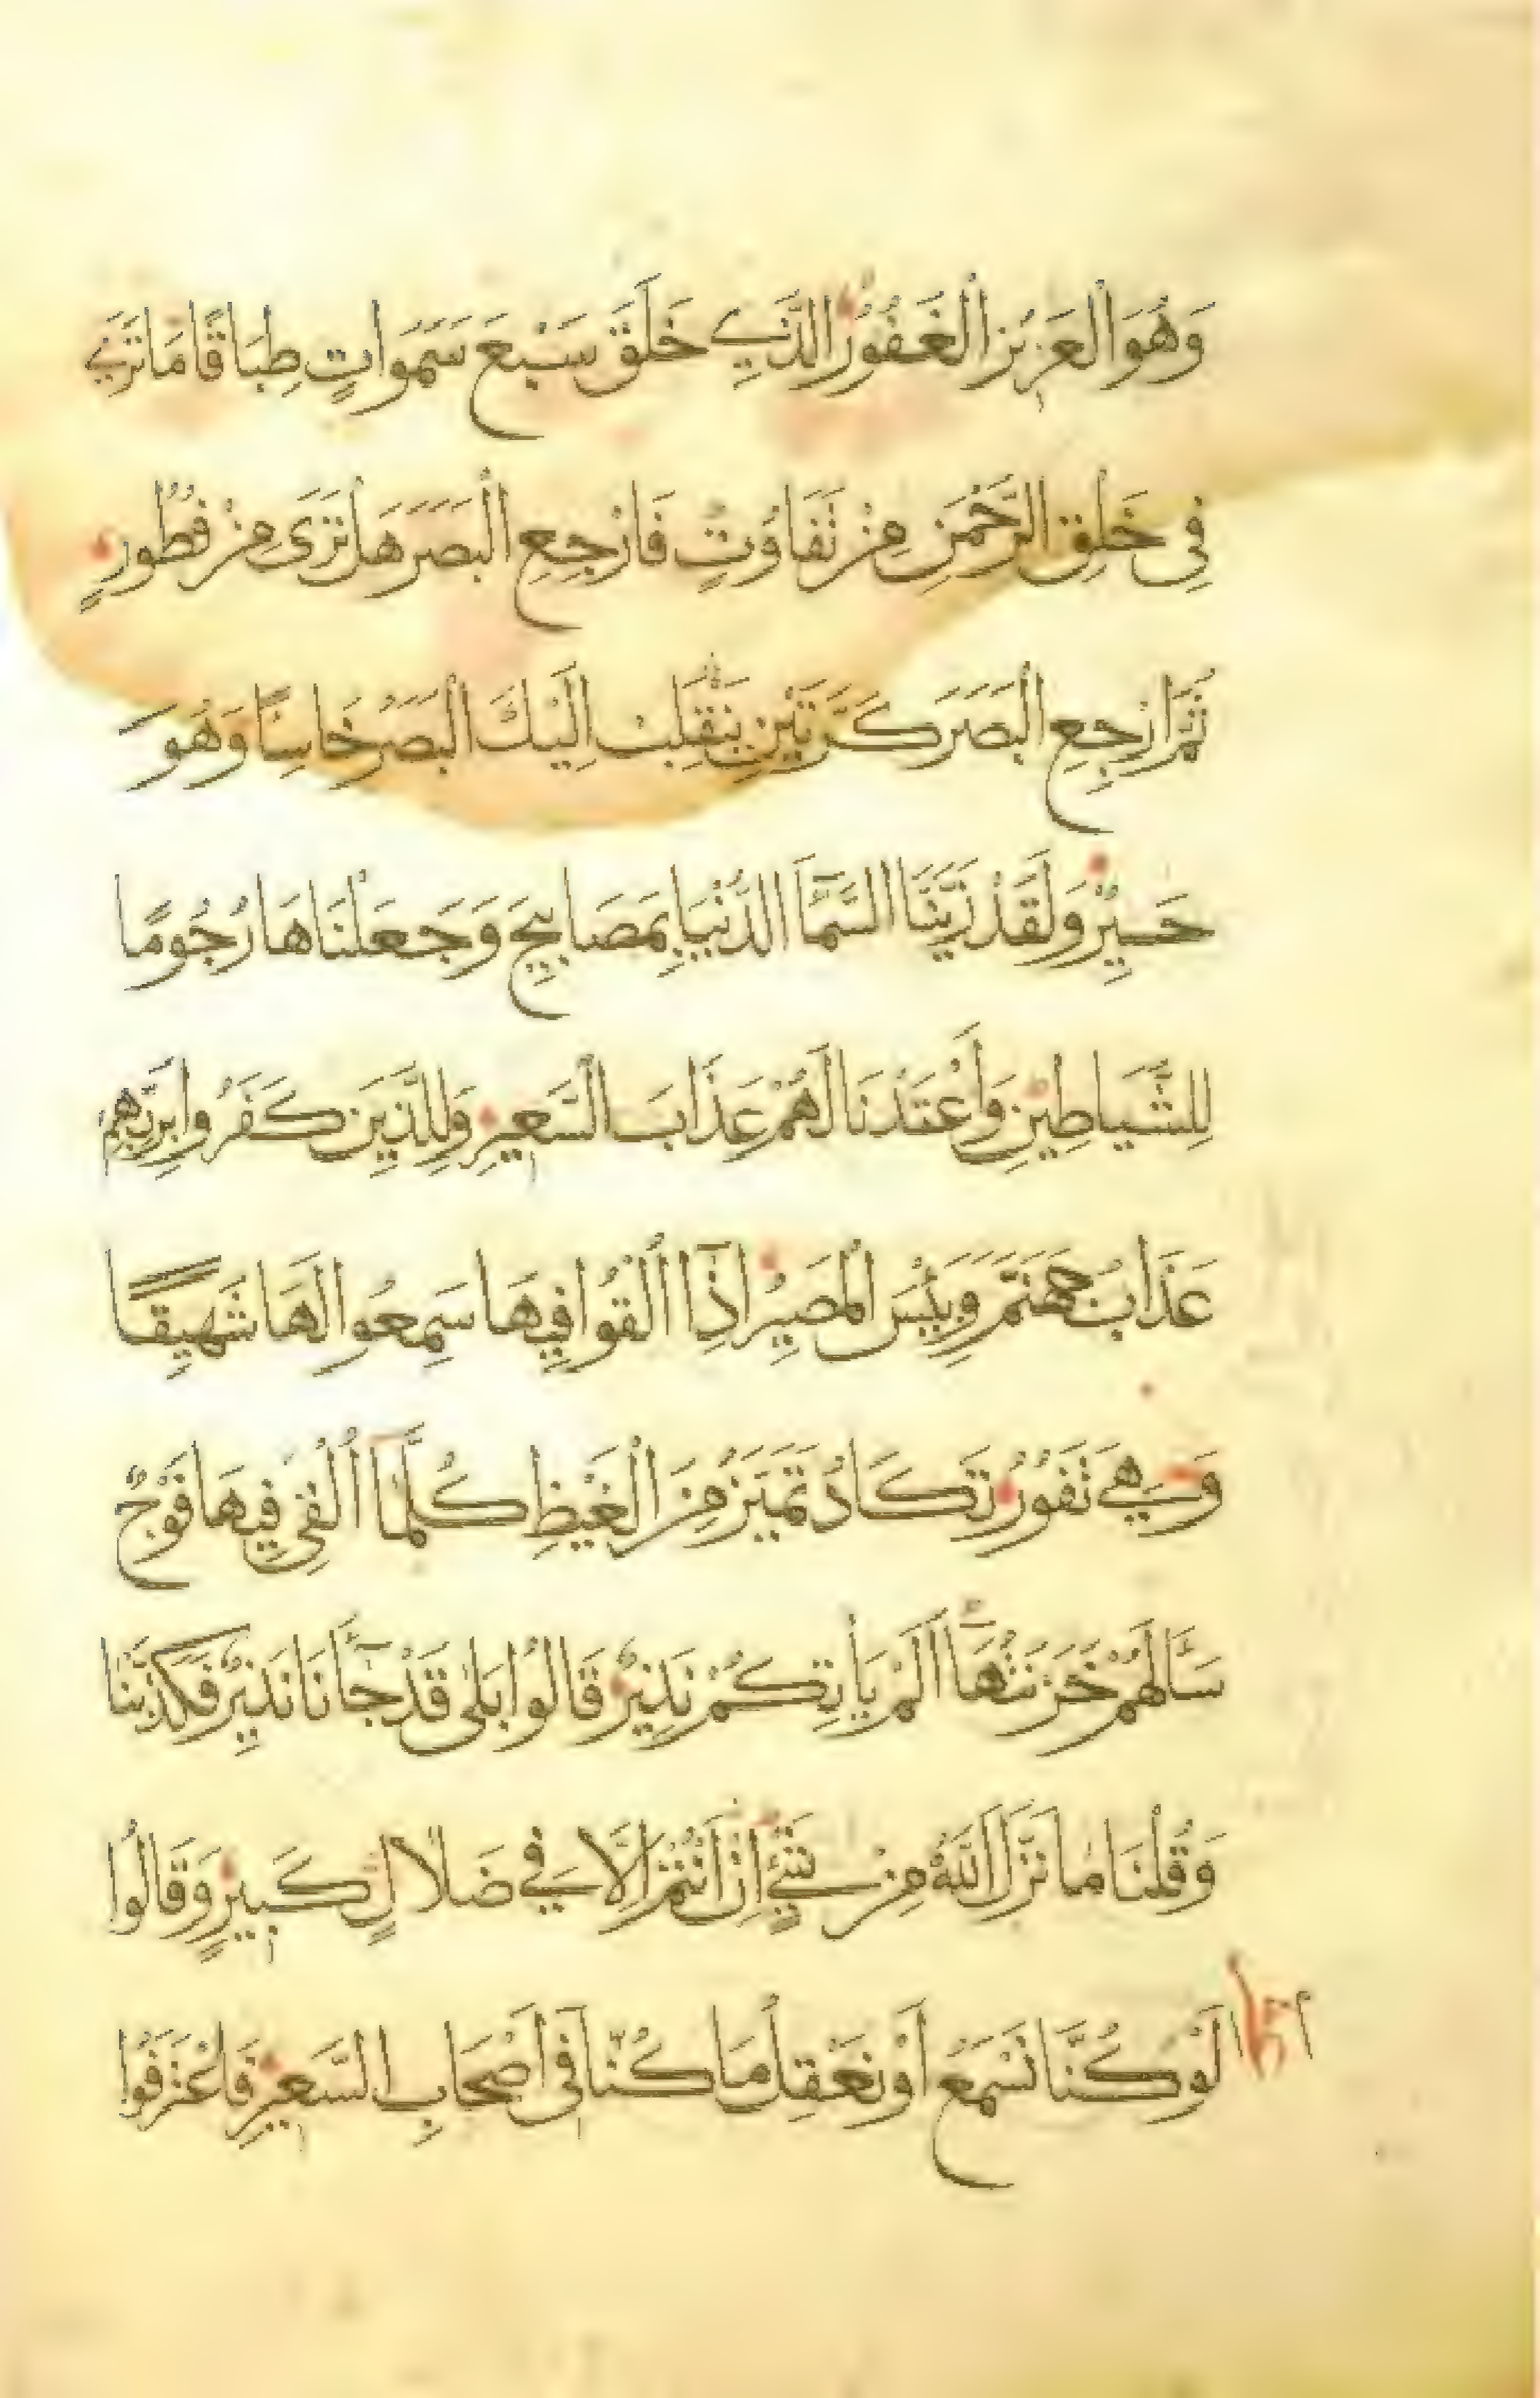 وَهُوَ الْعَزِيزُ الْغَفُورُ الَّذِي خَلَقَ سَبْعَ سَمَوَاتٍ طِبَاقًا مَا تَرَى
فِي خَلْقِ الرَّحْمَنِ مِنْ تَفَاوُتٍ فَارْجِعِ الْبَصَرَ هَلْ تَرَى مِنْ فُطُورٍ
ثُمَّ ارْجِعِ الْبَصَرَ كَرَّتَيْنِ يَنْقَلِبْ اِلَيْكَ الْبَصَرُ خَاسِئًا وَهُوَ
حَسِيرٌ وَلَقَدْ زَيَّنَّا السَّمَآ الدُّنْيَا بِمَصَابِيحَ وَجَعَلْنَاهَا رُجُومًا
لِلشَّيَاطِينِ وَأَعْتَدْنَا لَهُمْ عَذَابَ السَّعِيرِ وَلِلَّذِينَ كَفَرُوا بِرَبِّهِمْ
عَذَابُ جَهَنَّمَ وَبِئْسَ الْمَصِيرُ اِذَآ اُلْقُوا فِيهَا سَمِعُوا لَهَا شَهِيقًا
وَهِيَ تَفُورُ تَكَادُ تَمَيَّزُ مِنَ الْغَيْظِ كُلَّمَآ اُلْقِيَ فِيهَا فَوْجٌ
سَأَلَهُمْ خَزَنَتُهَآ اَلَمْ يَأْتِكُمْ نَذِيرٌ قَالُوا بَلَى قَدْ جَآءَنَا نَذِيرٌ فَكَذَّبْنَا
وَقُلْنَا مَا نَزَّلَ اللَّهُ مِنْ شَيْءٍ اِنْ اَنْتُمْ اِلَّا فِي ضَلَالٍ كَبِيرٍ وَقَالُوا
لَوْ كُنَّا نَسْمَعُ أَوْ نَعْقِلُ مَا كُنَّا فِي أَصْحَابِ السَّعِيرِ فَاعْتَرَفُوا